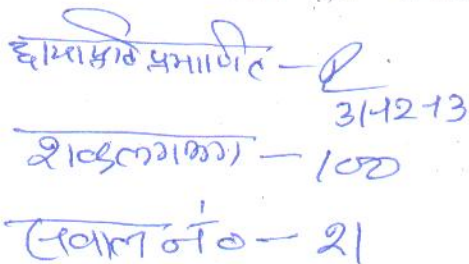 छायाप्रति प्रमाणित -
31-12-13
शब्द लगभग - 100
सवाल नं० - 21